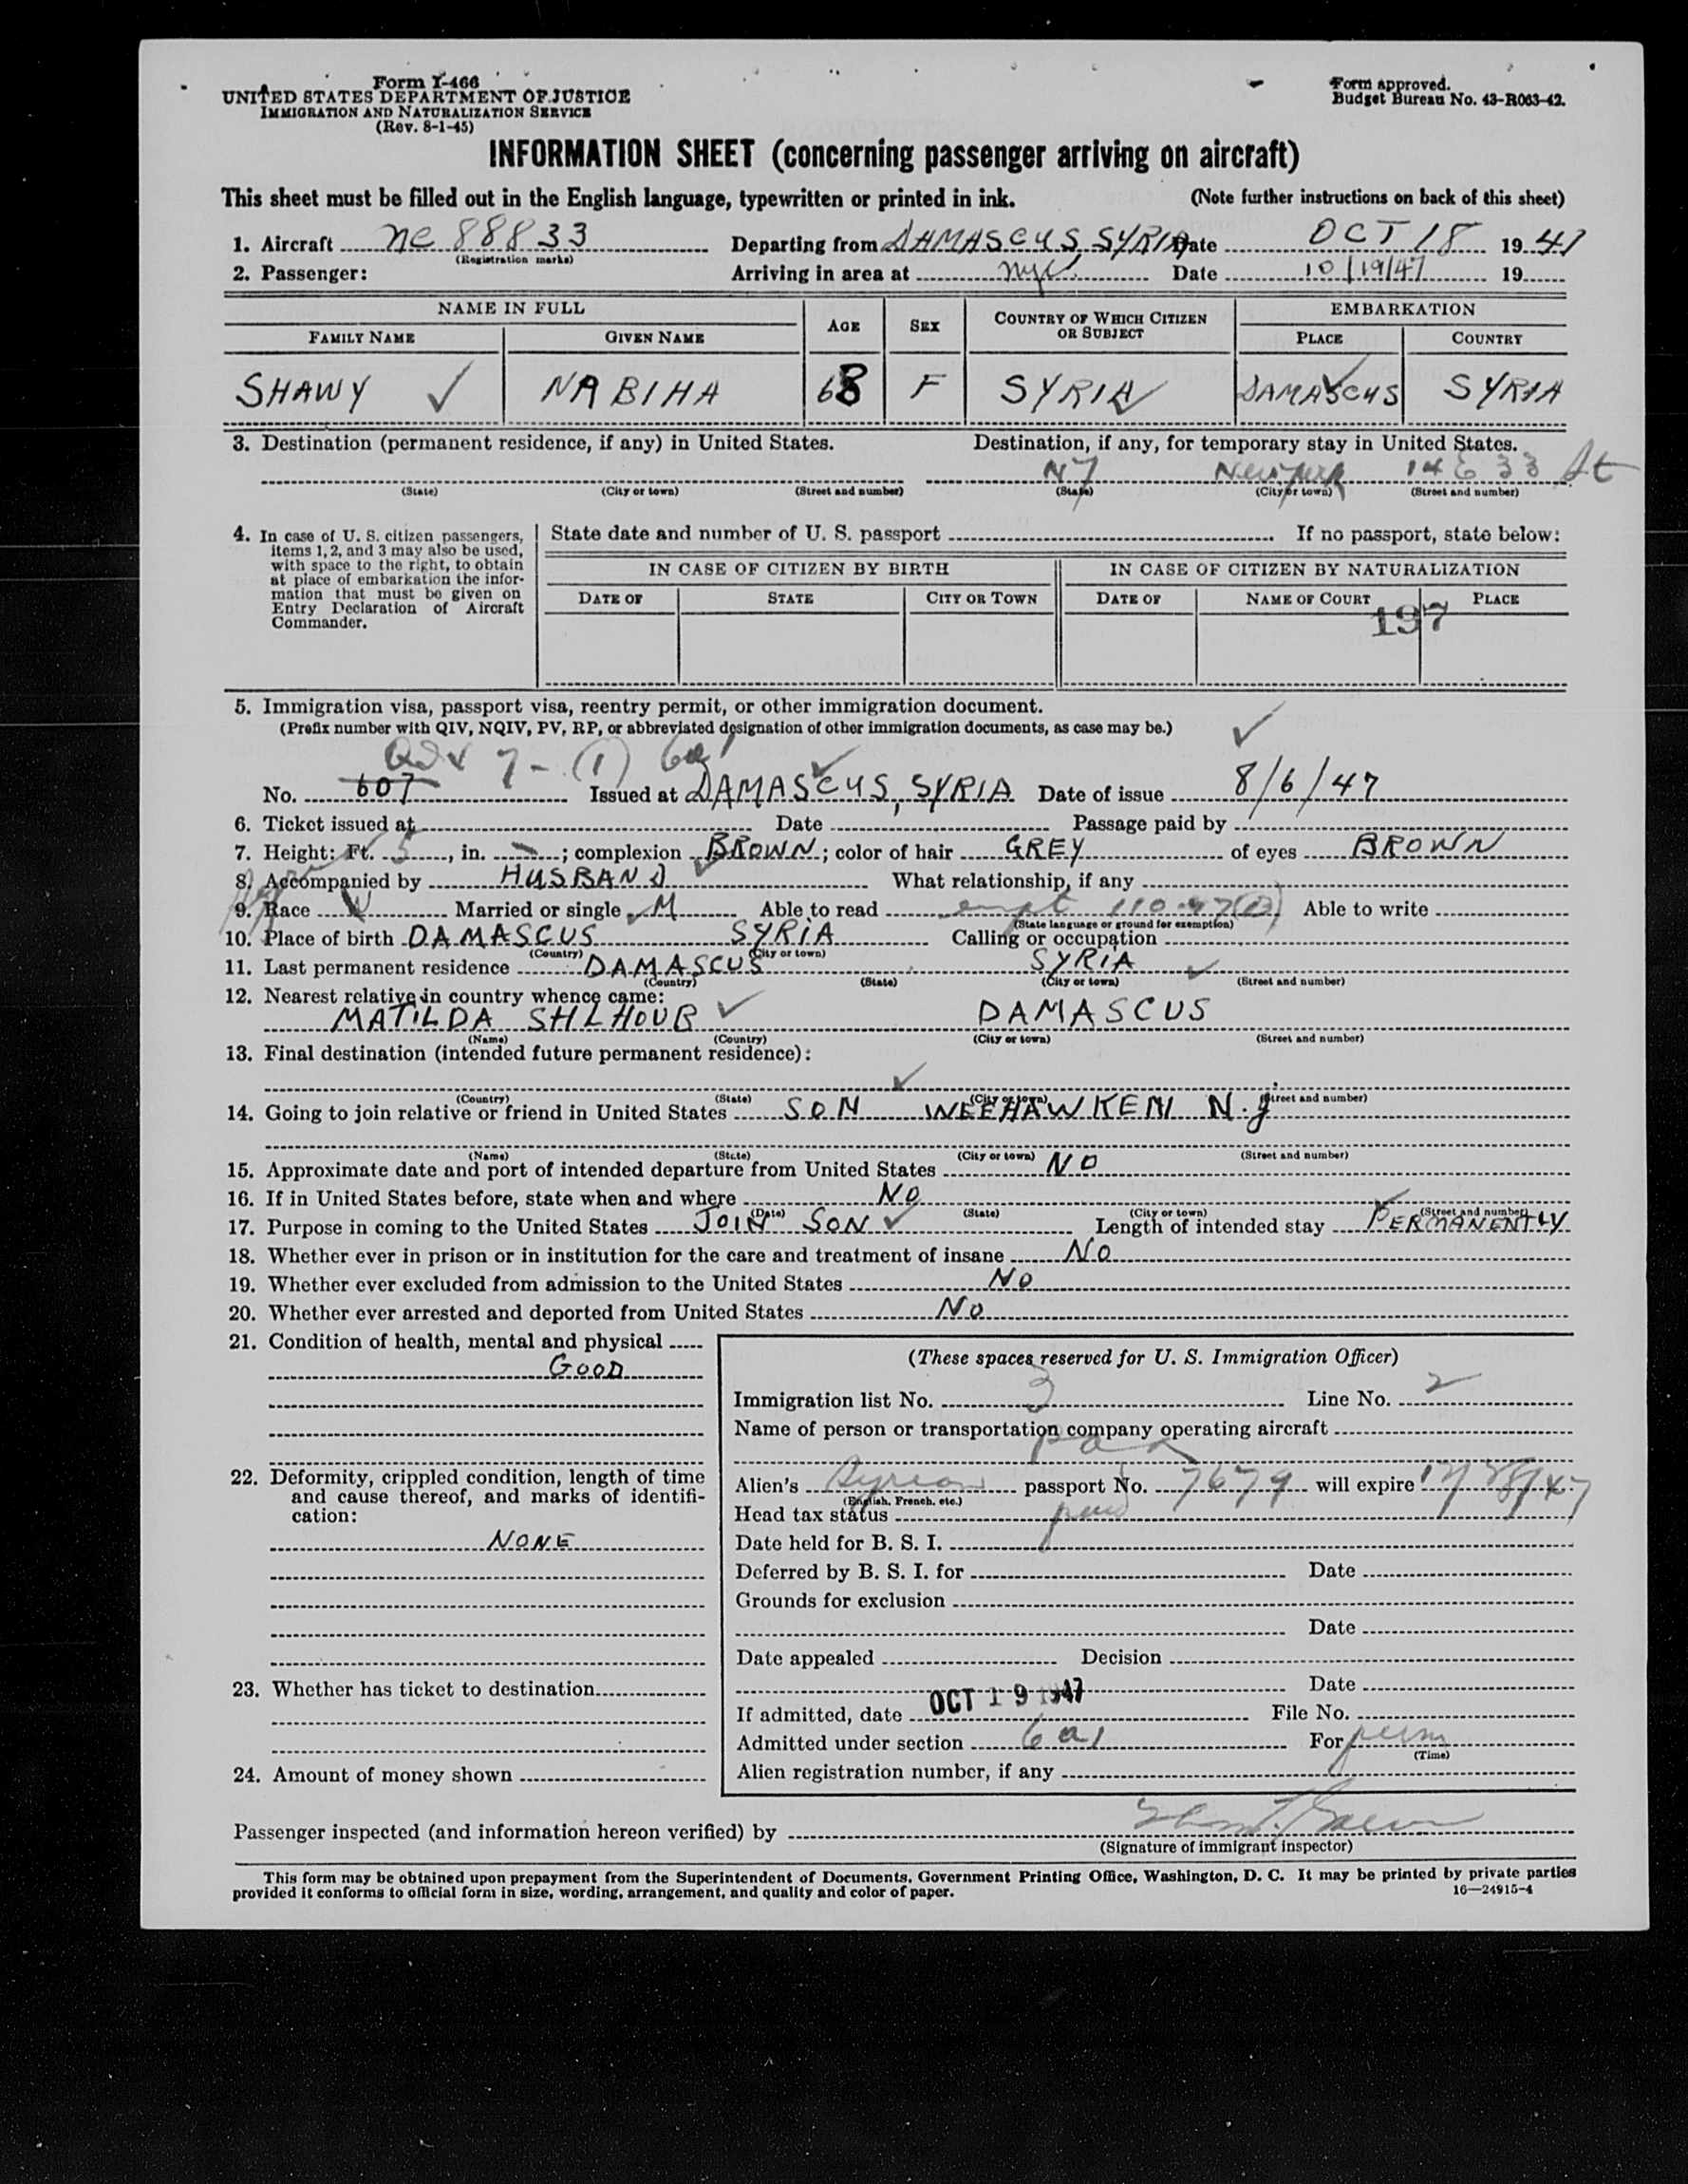 Form I-466
UNITED STATES DEPARTMENT OF JUSTICE
IMMIGRATION AND NATURALIZATION SERVICE
(Rev. 8-1-45)
Form approved.
Budget Bureau No. 43-R063-42.
INFORMATION SHEET (concerning passenger arriving on aircraft)
This sheet must be filled out in the English language, typewritten or printed in ink. (Note further instructions on back of this sheet)
1. Aircraft NC 88833 Departing from DAMASCUS, SYRIA Date OCT 18 1947
(Registration marks)
2. Passenger: Arriving in area at nyc Date 10/19/47 19
NAME IN FULL AGE SEX COUNTRY OF WHICH CITIZEN OR SUBJECT EMBARKATION
FAMILY NAME GIVEN NAME PLACE COUNTRY
SHAWY NABIHA 68 F SYRIA DAMASCUS SYRIA
3. Destination (permanent residence, if any) in United States. Destination, if any, for temporary stay in United States.
NY New York 14 E 33 St
(State) (City or town) (Street and number) (State) (City or town) (Street and number)
4. In case of U. S. citizen passengers, items 1, 2, and 3 may also be used, with space to the right, to obtain at place of embarkation the information that must be given on Entry Declaration of Aircraft Commander.
State date and number of U. S. passport If no passport, state below:
IN CASE OF CITIZEN BY BIRTH IN CASE OF CITIZEN BY NATURALIZATION
DATE OF STATE CITY OR TOWN DATE OF NAME OF COURT PLACE
197
5. Immigration visa, passport visa, reentry permit, or other immigration document.
(Prefix number with QIV, NQIV, PV, RP, or abbreviated designation of other immigration documents, as case may be.)
QIV 7-(1) 6a1
No. 607 Issued at DAMASCUS, SYRIA Date of issue 8/6/47
6. Ticket issued at Date Passage paid by
7. Height: Ft. 5, in. -; complexion BROWN; color of hair GREY of eyes BROWN
8. Accompanied by HUSBAND What relationship, if any
9. Race W Married or single M Able to read Able to write
(State language or ground for exemption)
10. Place of birth DAMASCUS SYRIA Calling or occupation
(Country) (City or town)
11. Last permanent residence DAMASCUS SYRIA
(Country) (State) (City or town) (Street and number)
12. Nearest relative in country whence came:
MATILDA SHLHOUB DAMASCUS
(Name) (Country) (City or town) (Street and number)
13. Final destination (intended future permanent residence):
(Country) (State) (City or town) (Street and number)
14. Going to join relative or friend in United States SON WEEHAWKEN N.J
(Name) (State) (City or town) (Street and number)
15. Approximate date and port of intended departure from United States NO
16. If in United States before, state when and where NO
(Date) (State) (City or town) (Street and number)
17. Purpose in coming to the United States JOIN SON Length of intended stay PERMANENTLY
18. Whether ever in prison or in institution for the care and treatment of insane NO
19. Whether ever excluded from admission to the United States NO
20. Whether ever arrested and deported from United States NO
21. Condition of health, mental and physical
GOOD
22. Deformity, crippled condition, length of time and cause thereof, and marks of identification:
NONE
23. Whether has ticket to destination
24. Amount of money shown
(These spaces reserved for U. S. Immigration Officer)
Immigration list No. 3 Line No. 2
Name of person or transportation company operating aircraft
paa
Alien's Syrian passport No. 7679 will expire
(English, French, etc.)
Head tax status paid
Date held for B. S. I.
Deferred by B. S. I. for Date
Grounds for exclusion
Date
Date appealed Decision
Date
If admitted, date OCT 19 1947 File No.
Admitted under section 6a1 For perm
(Time)
Alien registration number, if any
Passenger inspected (and information hereon verified) by
(Signature of immigrant inspector)
This form may be obtained upon prepayment from the Superintendent of Documents, Government Printing Office, Washington, D. C. It may be printed by private parties
provided it conforms to official form in size, wording, arrangement, and quality and color of paper. 16—24915-4